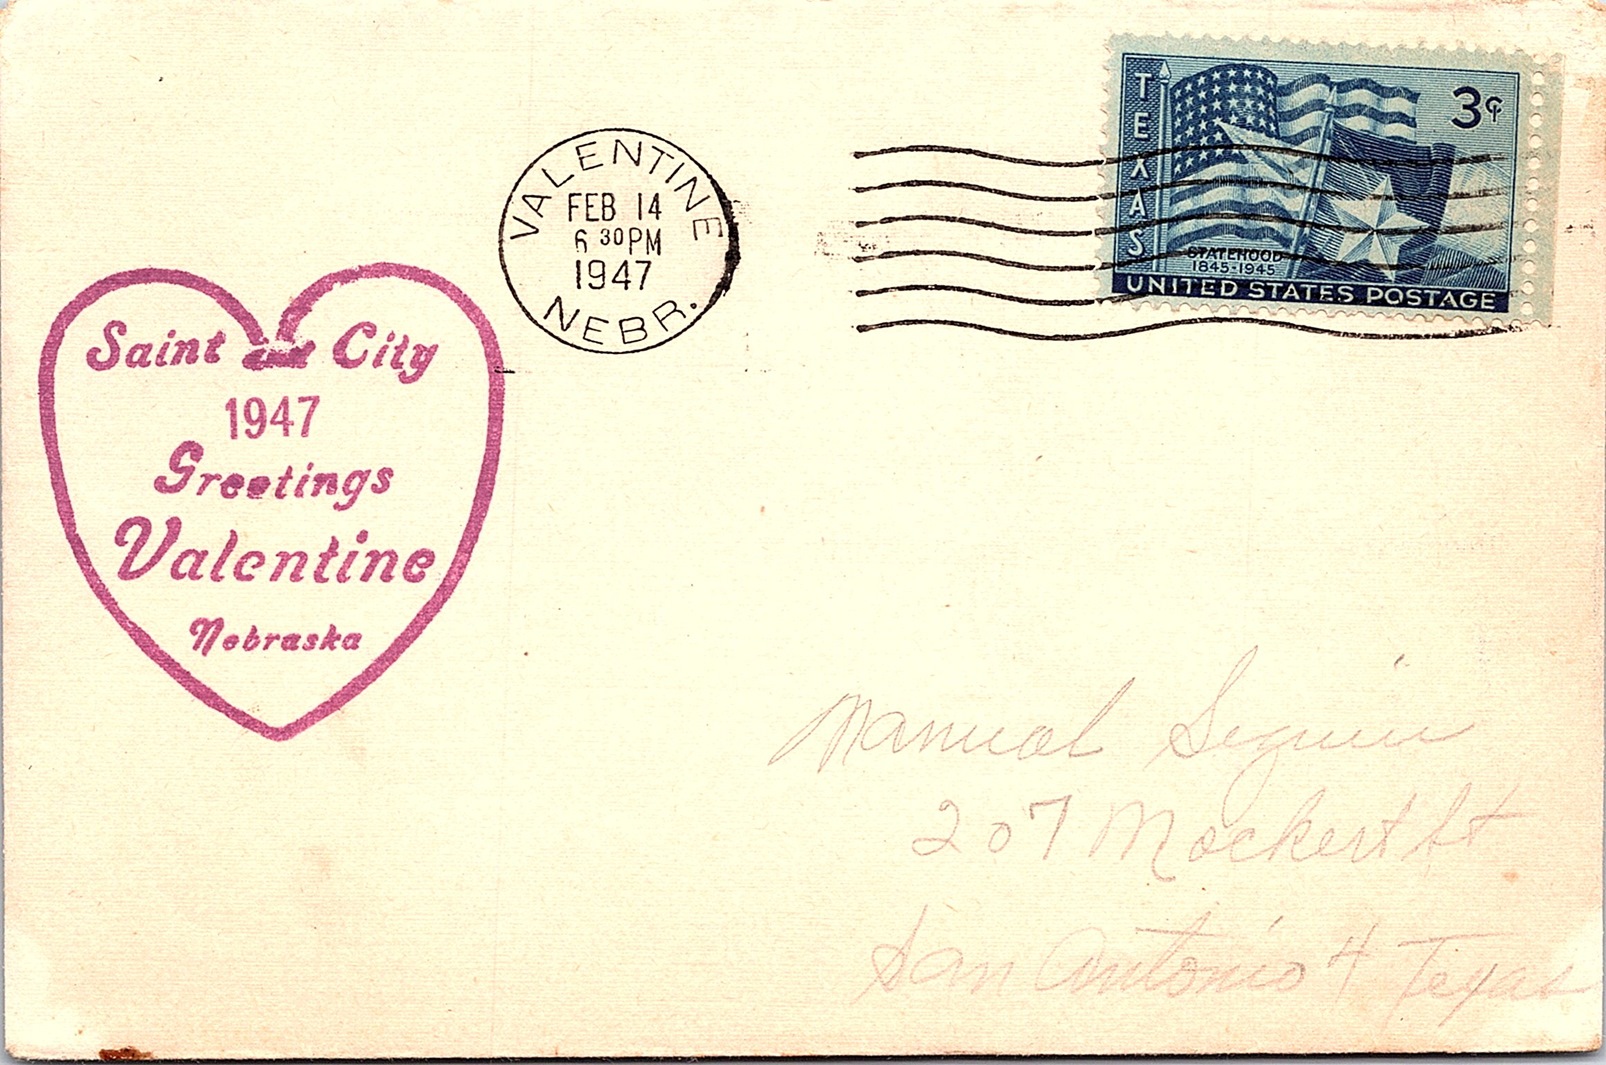 VALENTINE
FEB 14
6 30 PM
1947
NEBR.
TEXAS
3¢
STATEHOOD
1845-1945
UNITED STATES POSTAGE
Saint and City
1947
Greetings
Valentine
Nebraska
Manual Seguin
207 Mockert St
San Antonio 4 Texas